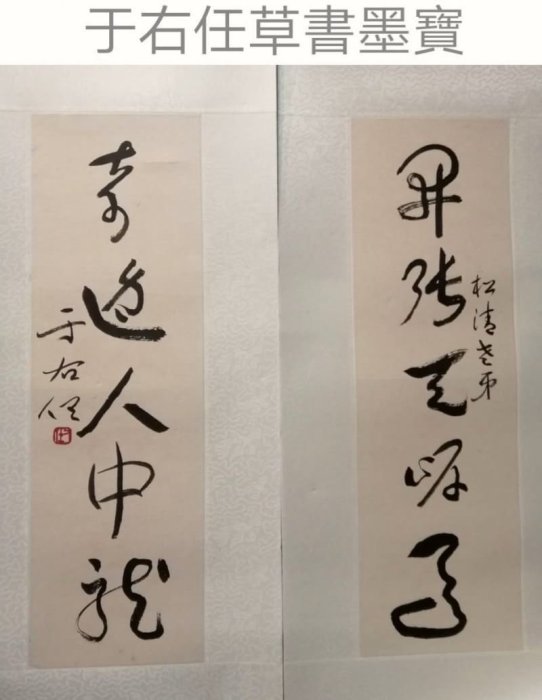 于右任草書墨寶
開張天岸馬
松清老弟
奇逸人中龍
于右任